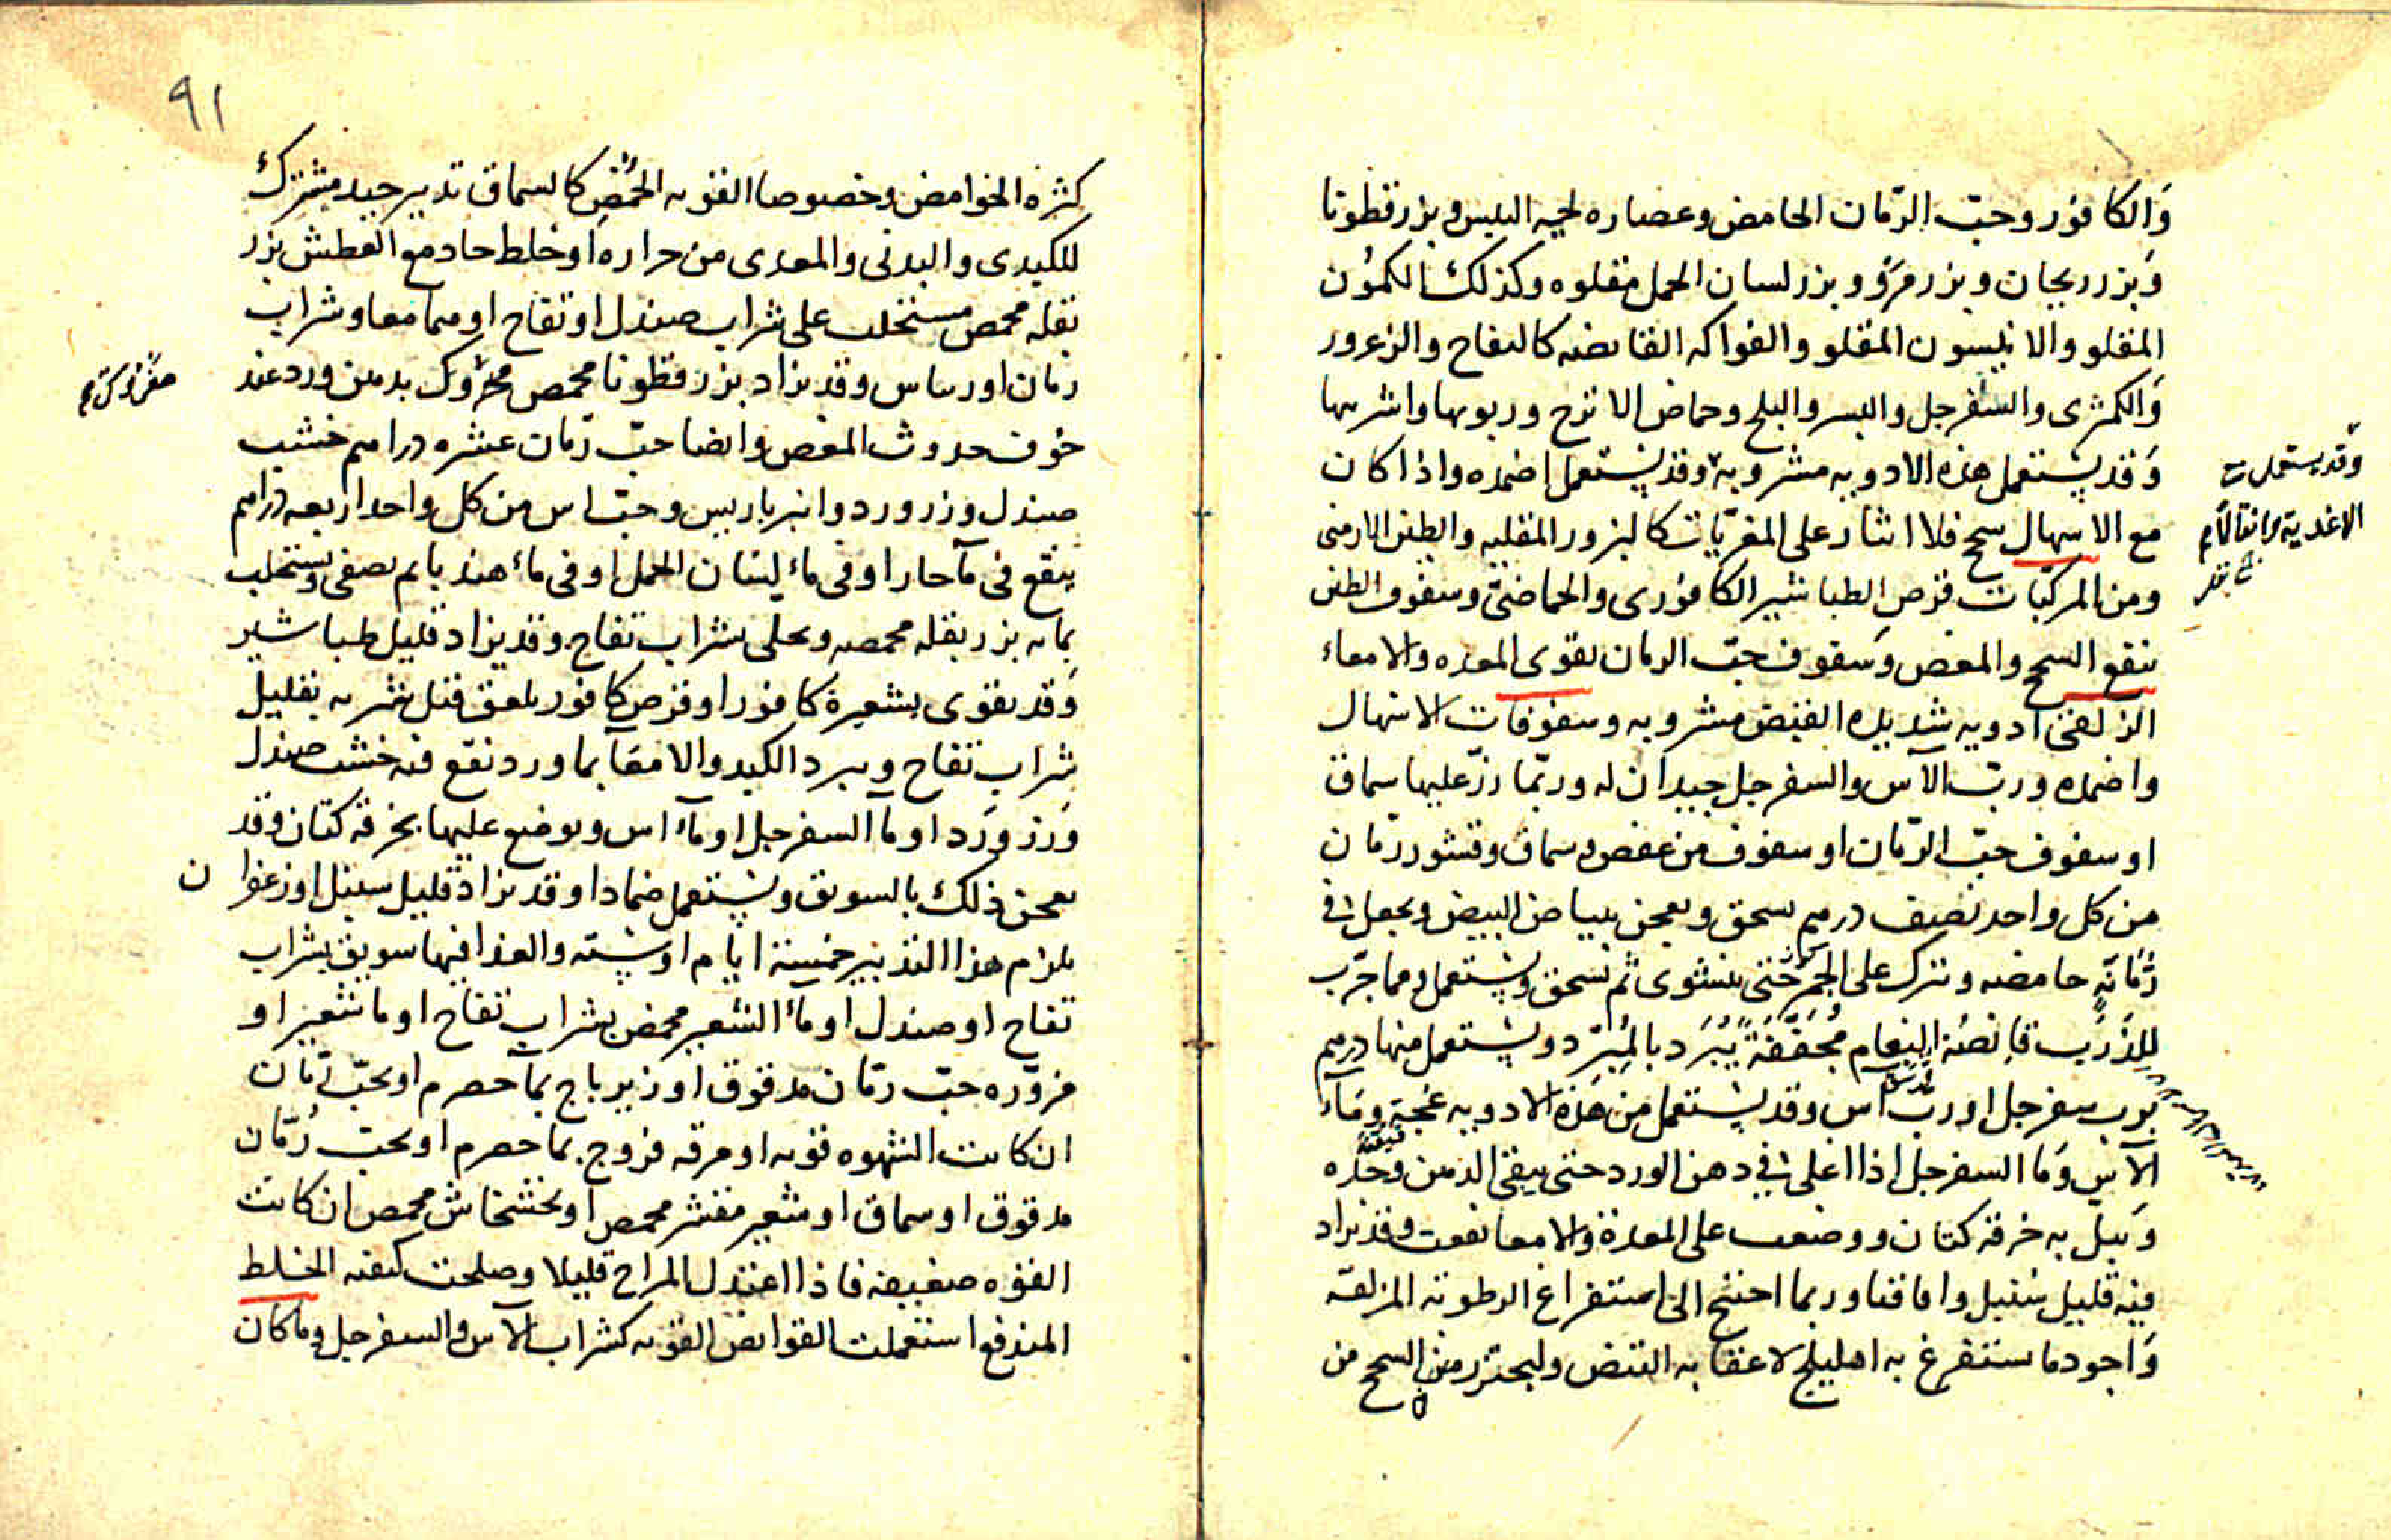 وَالكافور وحبّ الرّمان الحامض وعصاره لحيه التيس وبزرقطونا
وَبزر ريحان وبزر مرو وبزر لسان الحمل مقلوه وكذلك الكمون
المقلو والانيسون المقلو والفواكه القابضه كالتفاح والزعرور
وَالكمثرى والسفرجل والبسر والبلح وحماض الاترج وربوبها واشربها
وَقد يستعمل هذه الادويه مشروبة وقد يستعمل اضمده واذا كان
مع الاسهال سحج فلا اثار على المغريات كالبزور المقليه والطين الارمنى
ومن المركبات قرص الطباشير الكافورى والحماضى وسفوف الطين
ينفع السحج والمغص وَسفوف حبّ الرمان يقوى المعده والامعاء
الزلقى ادويه شديده القبض مشروبه وسفوفات الاسهال
واضمده وربّ الآس والسفرجل جيدان له وربّما ذرّ عليها سماق
او سفوف حبّ الرّمان او سفوف من عفص وسماق وقشور رمان
من كل واحد نصف درهم يسحق ويعجن ببياض البيض ويجعل فى
رُمّانة حامضه وتترك على الجمر حتى ينشوى ثم تسحق ويستعمل ومما جرّب
للذَرَب قانصة النعام مُجَفَّفَةً يُبْرَد بالمِبْرَد ويستعمل منها درهم
برب سفرجل او ربّ آس وقد يستعمل من هذه الادويه
الآس وَما السفرجل اذا اغلى فى دهن الورد حتى يبقى الدهن وحده
وَيبلّ به خرقه كتان ووضعت على المعدة والامعا نفعت وقد يزاد
فيه قليل سُنبل واقاقيا وربما احتيج الى استفراغ الرطوبه المزلقه
وَاجود ما يستفرغ به اهليلج لاعقابه القبض وليحترز من السحج من
وقد يستعمل
الاغدية
٩١
كثره الحوامض وخصوصا القويه الحمض كالسماق تدبير جيد مشترك
للكبدى والبدنى والمعدى من حراره او خلط حاد مع العطش بزر
بقله محمص مستحلب على شراب صندل او تفاح او هما معا وشراب
رمان اورساس وقد يزاد بزرقطونا محمص محروك بدهن ورد عند
خوف حدوث المغص وايضا حبّ رمان عشره دراهم خشب
صندل وزر ورد وانبرباريس وحبّ اس من كل واحد اربعه دراهم
ينقع فى مآ حار او فى ماء لسان الحمل او فى ماء هندبا ثم يصفى ويستحلب
بمائه بزر بقله محمصه ويحلى بشراب تفاح وقد يزاد قليل طباشير
وَقد يقوى بشعيرة كافور او قرص كافور يلعق قبل شربه بقليل
شراب تفاح ويبرد الكبد والامعآ بماورد نقع فيه خشب صندل
وَزر وَرد او مآ السفرجل او مآء اس ويوضع عليها بخرقه كتان وقد
يعجن ذلك بالسويق ويستعمل ضمادا وقد يزاد قليل سنبل او زعفرا ن
يلزم هذا التدبير خمسة ايام او سته والغذا فيها سويق بشراب
تفاح او صندل او ماء الشعير محمض بشراب تفاح او ما شعير او
مزوّره حبّ رمّان مدقوق او زيرباج بمآ حصرم او بحبّ رمّان
ان كانت الشهوه قويه او مرقه فروج بما حصرم او بحبّ رُمّان
مدقوق او سماق او شعير مقشر محمص او بخشخاش محمص ان كانت
القوه ضعيفه فاذا اعتدل المزاج قليلا وصلحت كيفيه الخلط
المندفع استعملت القوابض القويه كشراب الآس والسفرجل وما كان